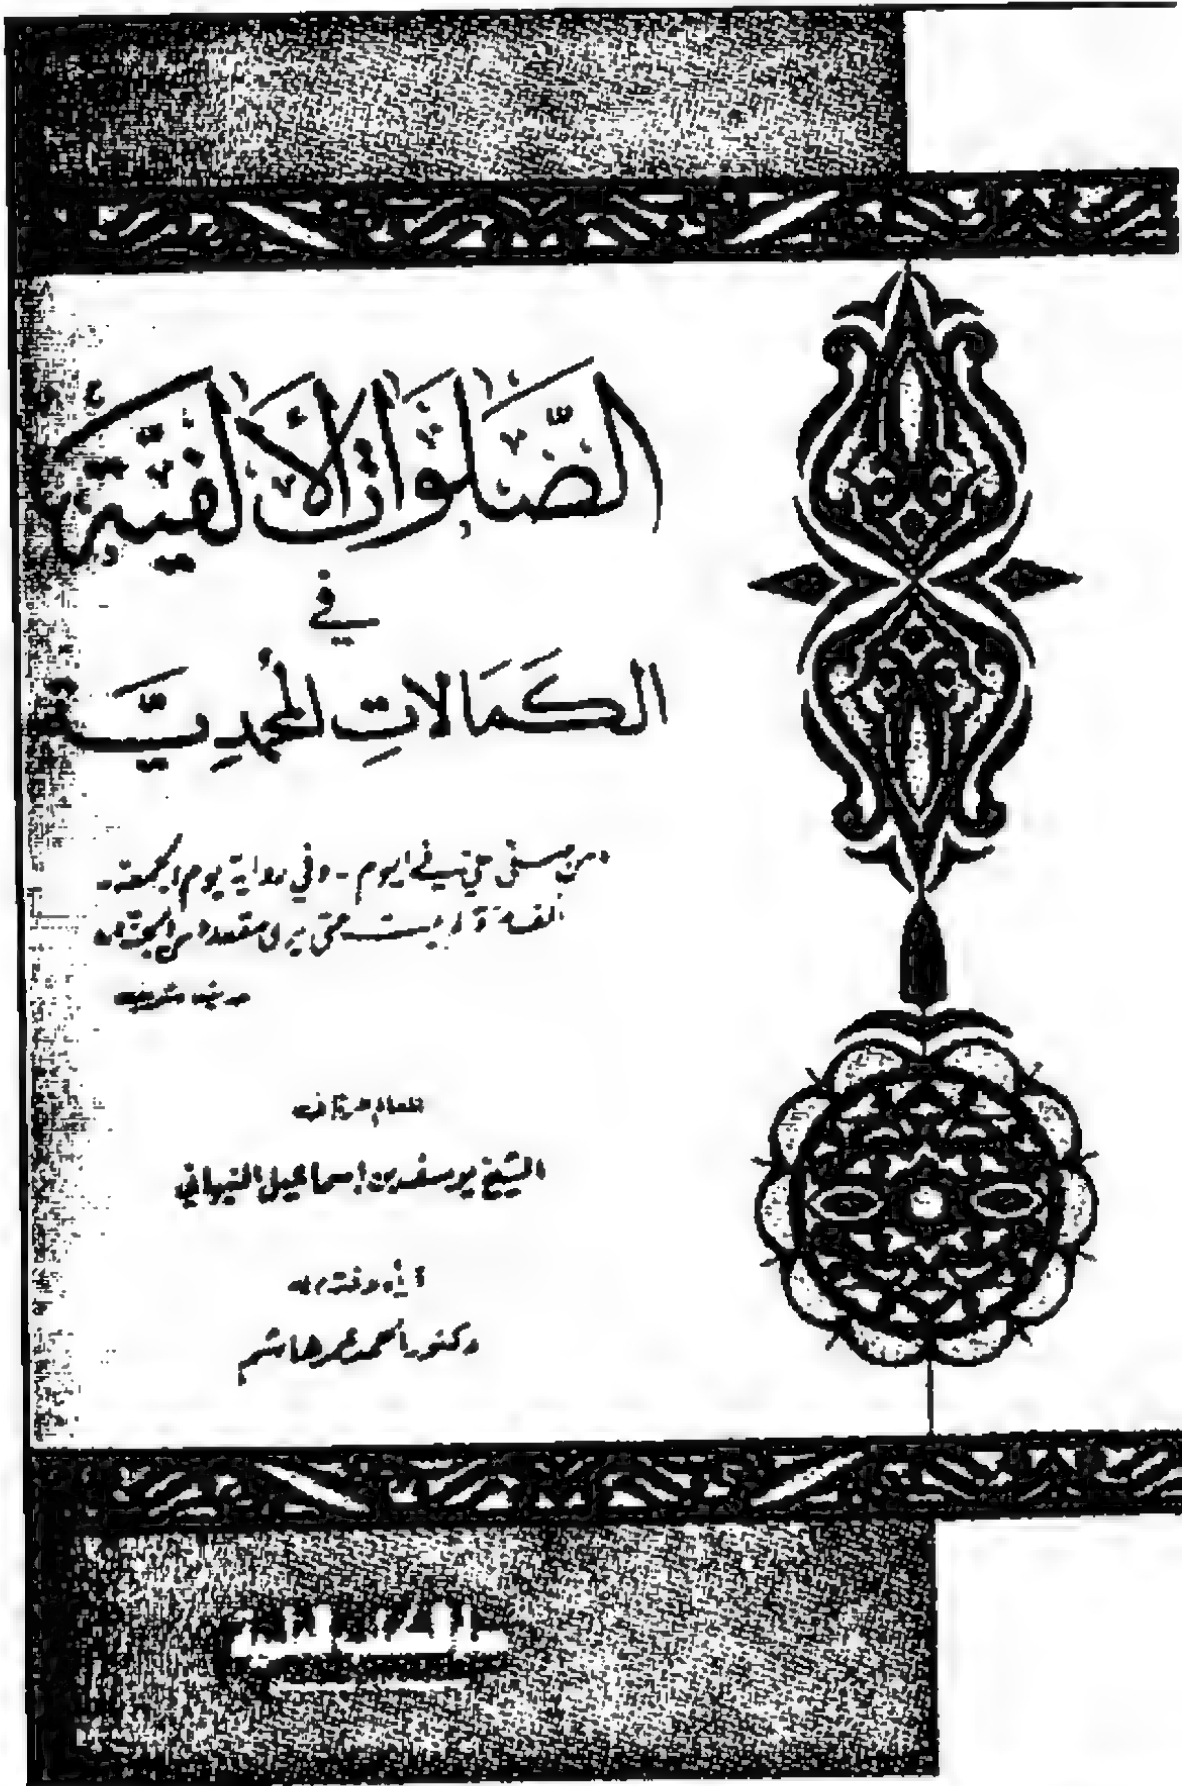 الصَّلَوَاتُ الأَلْفِيَّة
في
الكَمَالاتِ المحمّدِيَّة
من صلى علي في اليوم - وفي رواية يوم الجمعة -
ألف مرة لم يمت حتى يرى مقعده من الجنة
حديث شريف
الشيخ يوسف بن إسماعيل النبهاني
دكتور أحمد عمر هاشم